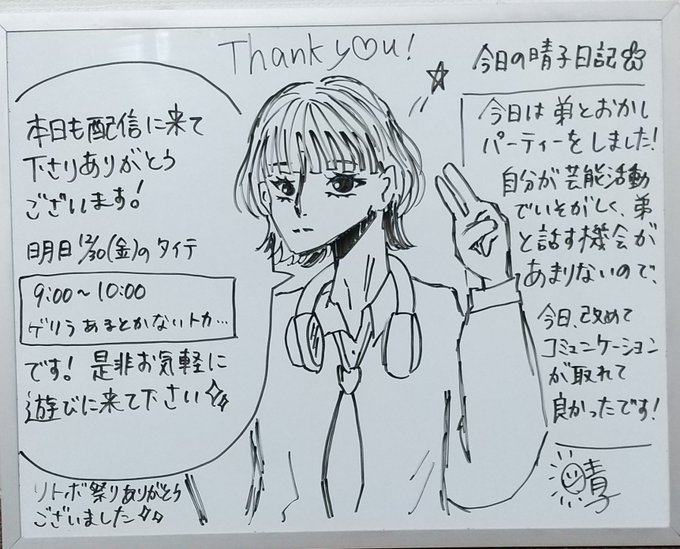 Thank you!
本日も配信に来て
下さりありがとう
ございます!
明日12/30(金)のタイテ
9:00〜10:00
ゲリラあるとかないトカ...
です! 是非お気軽に
遊びに来て下さい
リトボ祭りありがとう
ございました
今日の晴子日記
今日は弟とおかし
パーティーをしました!
自分が芸能活動
でいそがしく、弟
と話す機会が
あまりないので、
今日、改めて
コミュニケーション
が取れて
良かったです!
晴子